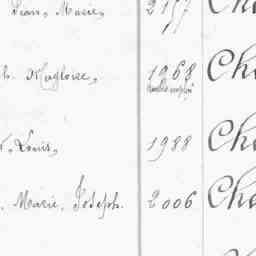 Jean, Marie, 2157 Cha
h. Magloire, 1968 Cha
Louis, 1988 Cha
Marie, Joseph. 2006 Cha